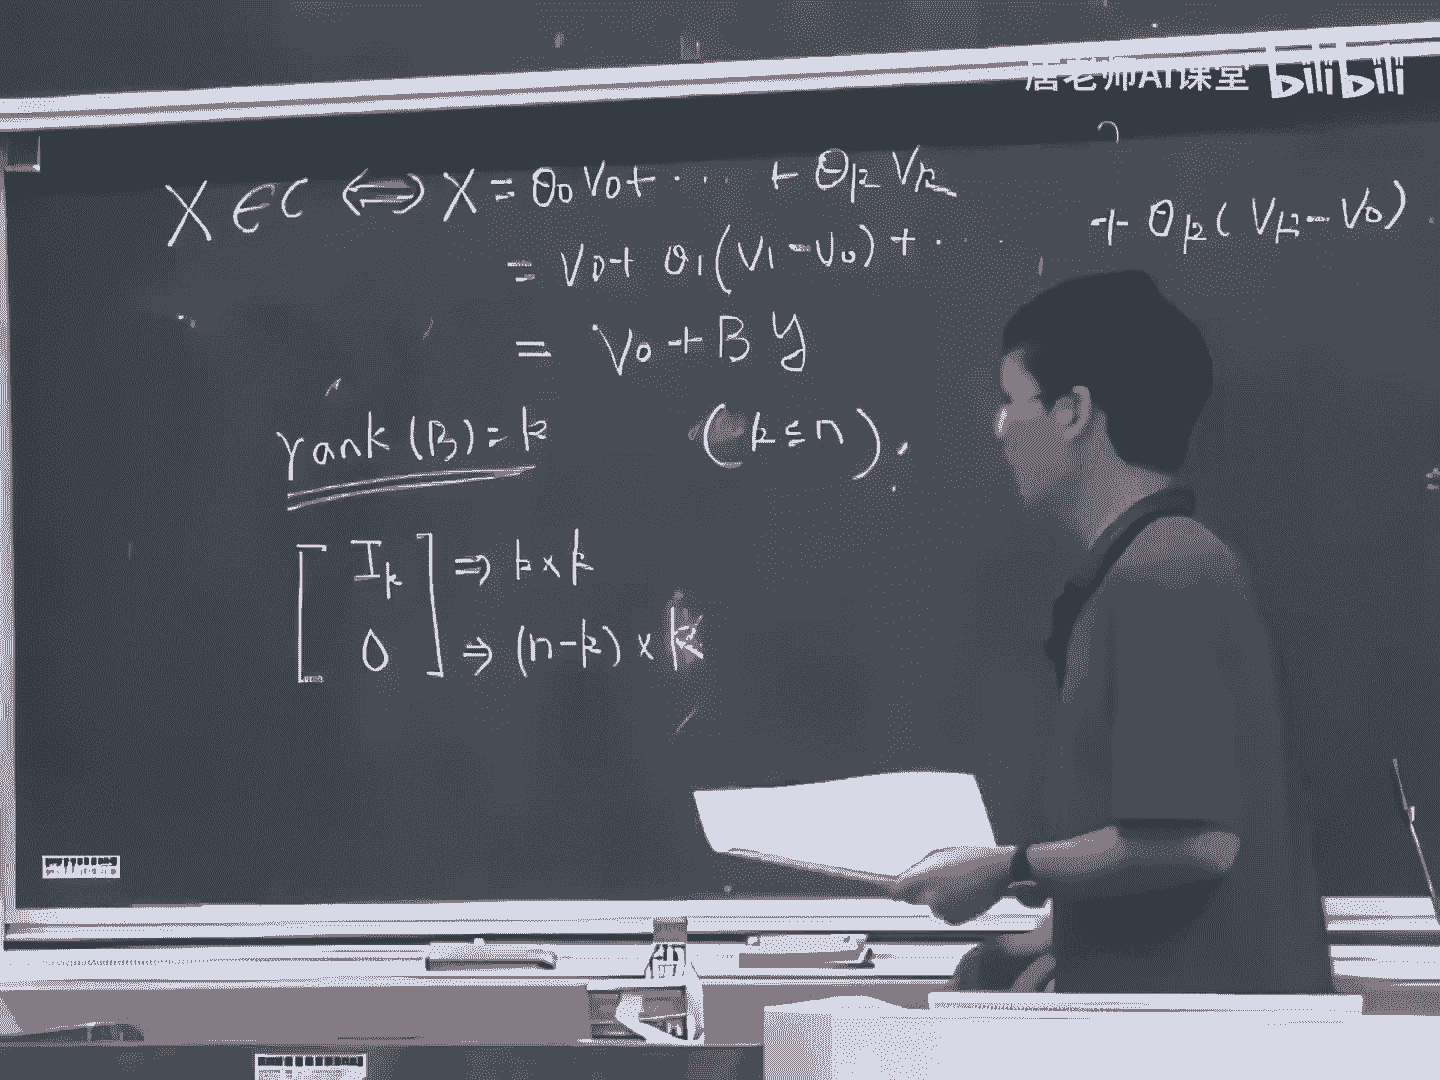 唐老师AI课堂 bilibili
X ∈ C ⇔ X = θ0 V0 + ··· + θk Vk
= V0 + θ1 (V1 - V0) + ···· + θk ( Vk - V0 )
= V0 + B y
rank (B) = k (k ≤ n).
[ Ik ] ⇒ k × k
[ 0 ] ⇒ (n-k) × k